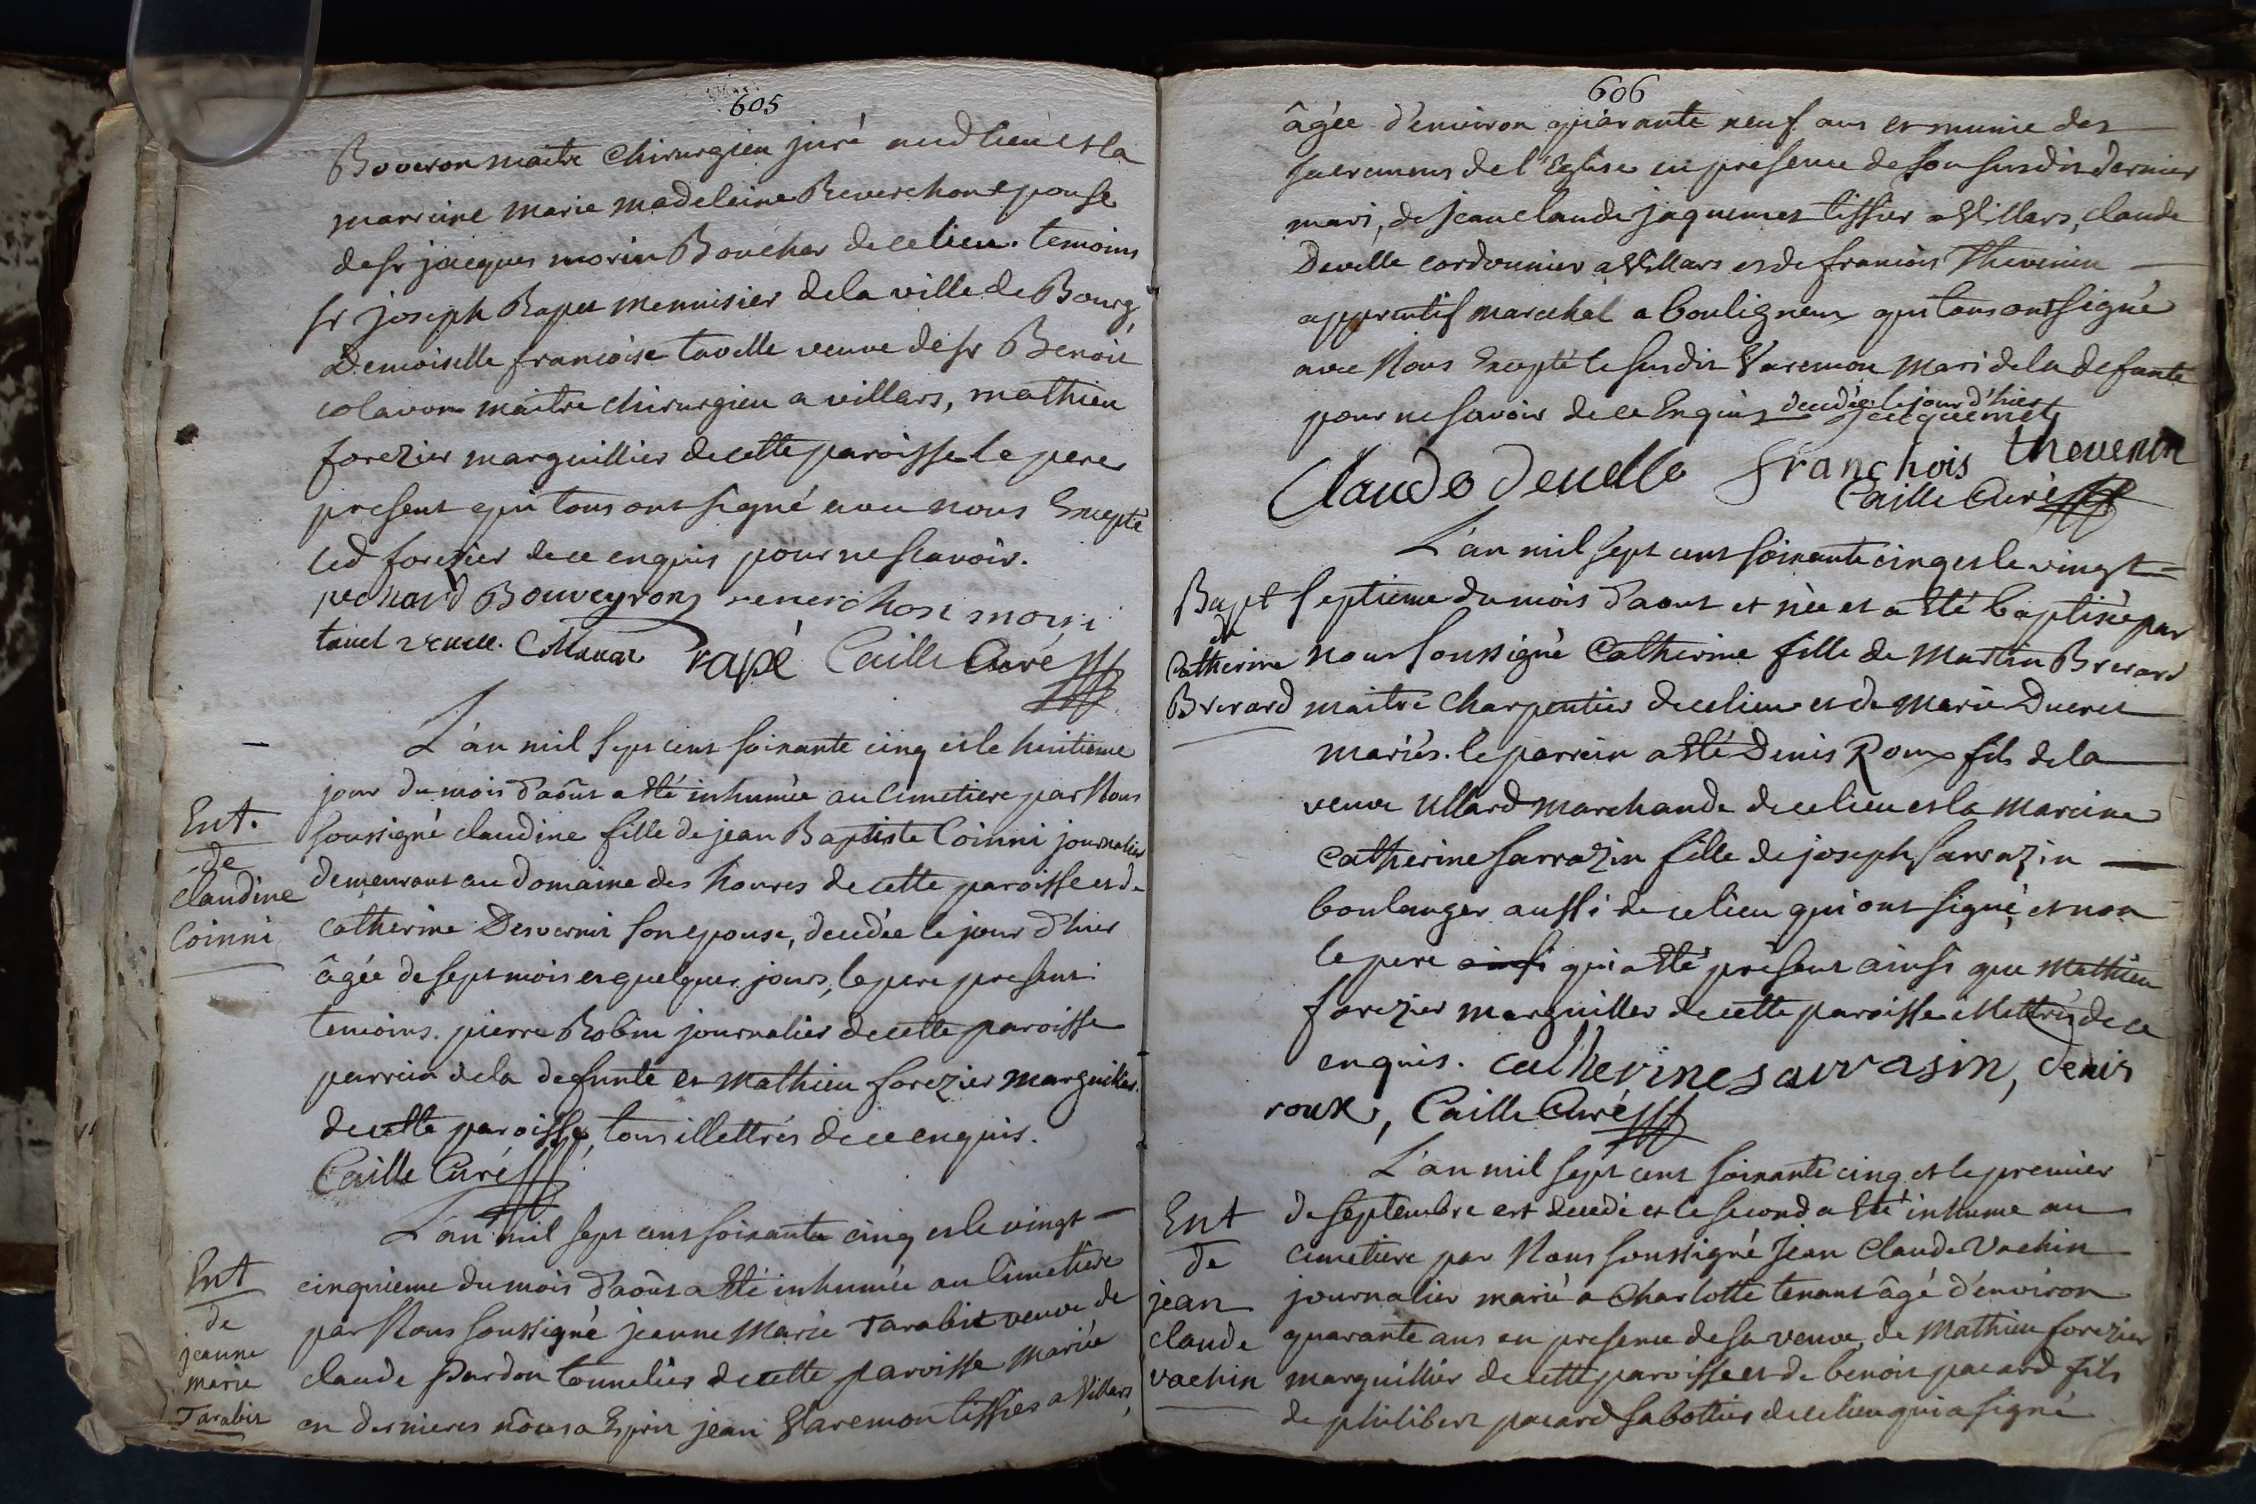 605
Boveron maitre Chirurgien juré aud lieu et la
marreine marie madeleine Reverchon epouse
de sr jacques morin Boucher de ce lieu. temoins
sr joseph Rapet menuisier de la ville de Bourg,
Demoiselle francoise tavelle veuve de sr Benoit
colavon maitre chirurgien a villars, mathieu
forezier marguillier de cette paroisse le pere
present qui tous ont signé avec nous Excepté
led forezier de ce enquis pour ne scavoir.
Bouveyron reverchon morin
rapé Caille Curé
L'an mil sept cent soixante cinq et le huitieme
jour du mois d'aôut a Eté inhumée au Cimetiere par Nous
Ent.
de
claudine
Coinni
soussigné claudine fille de jean Baptiste Coinni journalier
demeurant au domaine des houres de cette paroisse et de
catherine Desvernir son epouse, decedée le jour d'hier
âgée de sept mois et quelques jours, le pere present
temoins. pierre Robin journalier de cette paroisse
parrain de la defunte et mathieu forezier marguillier.
de cette paroisse, tous illettrés de ce enquis.
Caille Curé
L'an mil sept cent soixante cinq et le vingt
Ent
de
jeanne
marie
Tarabit
cinquieme du mois d'aôut a Eté inhumée au Cimetiere
par Nous soussigné jeanne Marie Tarabit veuve de
claude Pardon tonnelier de cette paroisse mariée
en dernieres nôces a Esprit jean Varemon tissier a Villars,
606
âgée d'environ quarante neuf ans et munie des
sacremens de l'Eglise en presence de son susdit dernier
mari, de jean claude jaquemet tissier a Villars, claude
Develle cordonnier a Villars et de francois Thevenin
apprentif marechal a bouligneux qui tous ont signé
avec Nous Excepté le susdit Varemon mari de la defunte
pour ne savoir de ce Enquis decedée le jour d'hier
Jacquemet
Claude develle franchois thevenin
Caille Curé
L'an mil sept cent soixante cinq et le vingt
Bapt
de
Catherine
Brevard
septieme du mois d'aout est née et a Eté baptisée par
nous soussigné Catherine fille de Martin Brevard
maitre Charpentier de ce lieu et de marie Ducret
mariés. le parrein a Eté Denis Roux fils de la
veuve Ullard marchande de ce lieu et la mareine
catherine sarrazin fille de joseph sarrazin
boulanger aussi de ce lieu qui ont signé et non
le pere ainsi qui a Eté présent ainsi que Mathieu
forezier marguiller de cette paroisse illettrés de ce
enquis. catherine sarrasin, denis
roux, Caille Curé
L'an mil sept cent soixante cinq et le premier
Ent
de
jean
claude
vachin
de septembre est decedé et le second a Eté inhume au
cimetiere par Nous soussigné Jean Claude Vachin
journalier marié a Charlotte tenant âgé d'environ
quarante ans en presence de sa veuve, de Mathieu forezier
marguillier de cette paroisse et de benoit pacard fils
de philibert pacard sabottier de ce lieu qui a signé